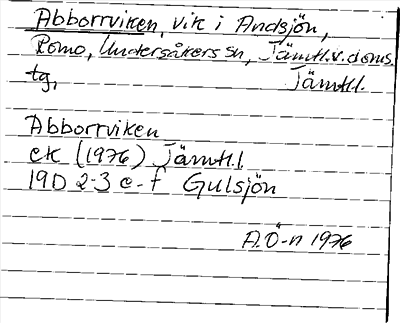 Abborrviken, vik i Andsjön,
Romo, Undersåkers sn, Jämtl.v.doms.
tg, Jämtl.l.
Abborrviken
ek (1976) Jämtl.l
19D 2-3 e-f Gulsjön
A.Ö-n 1976